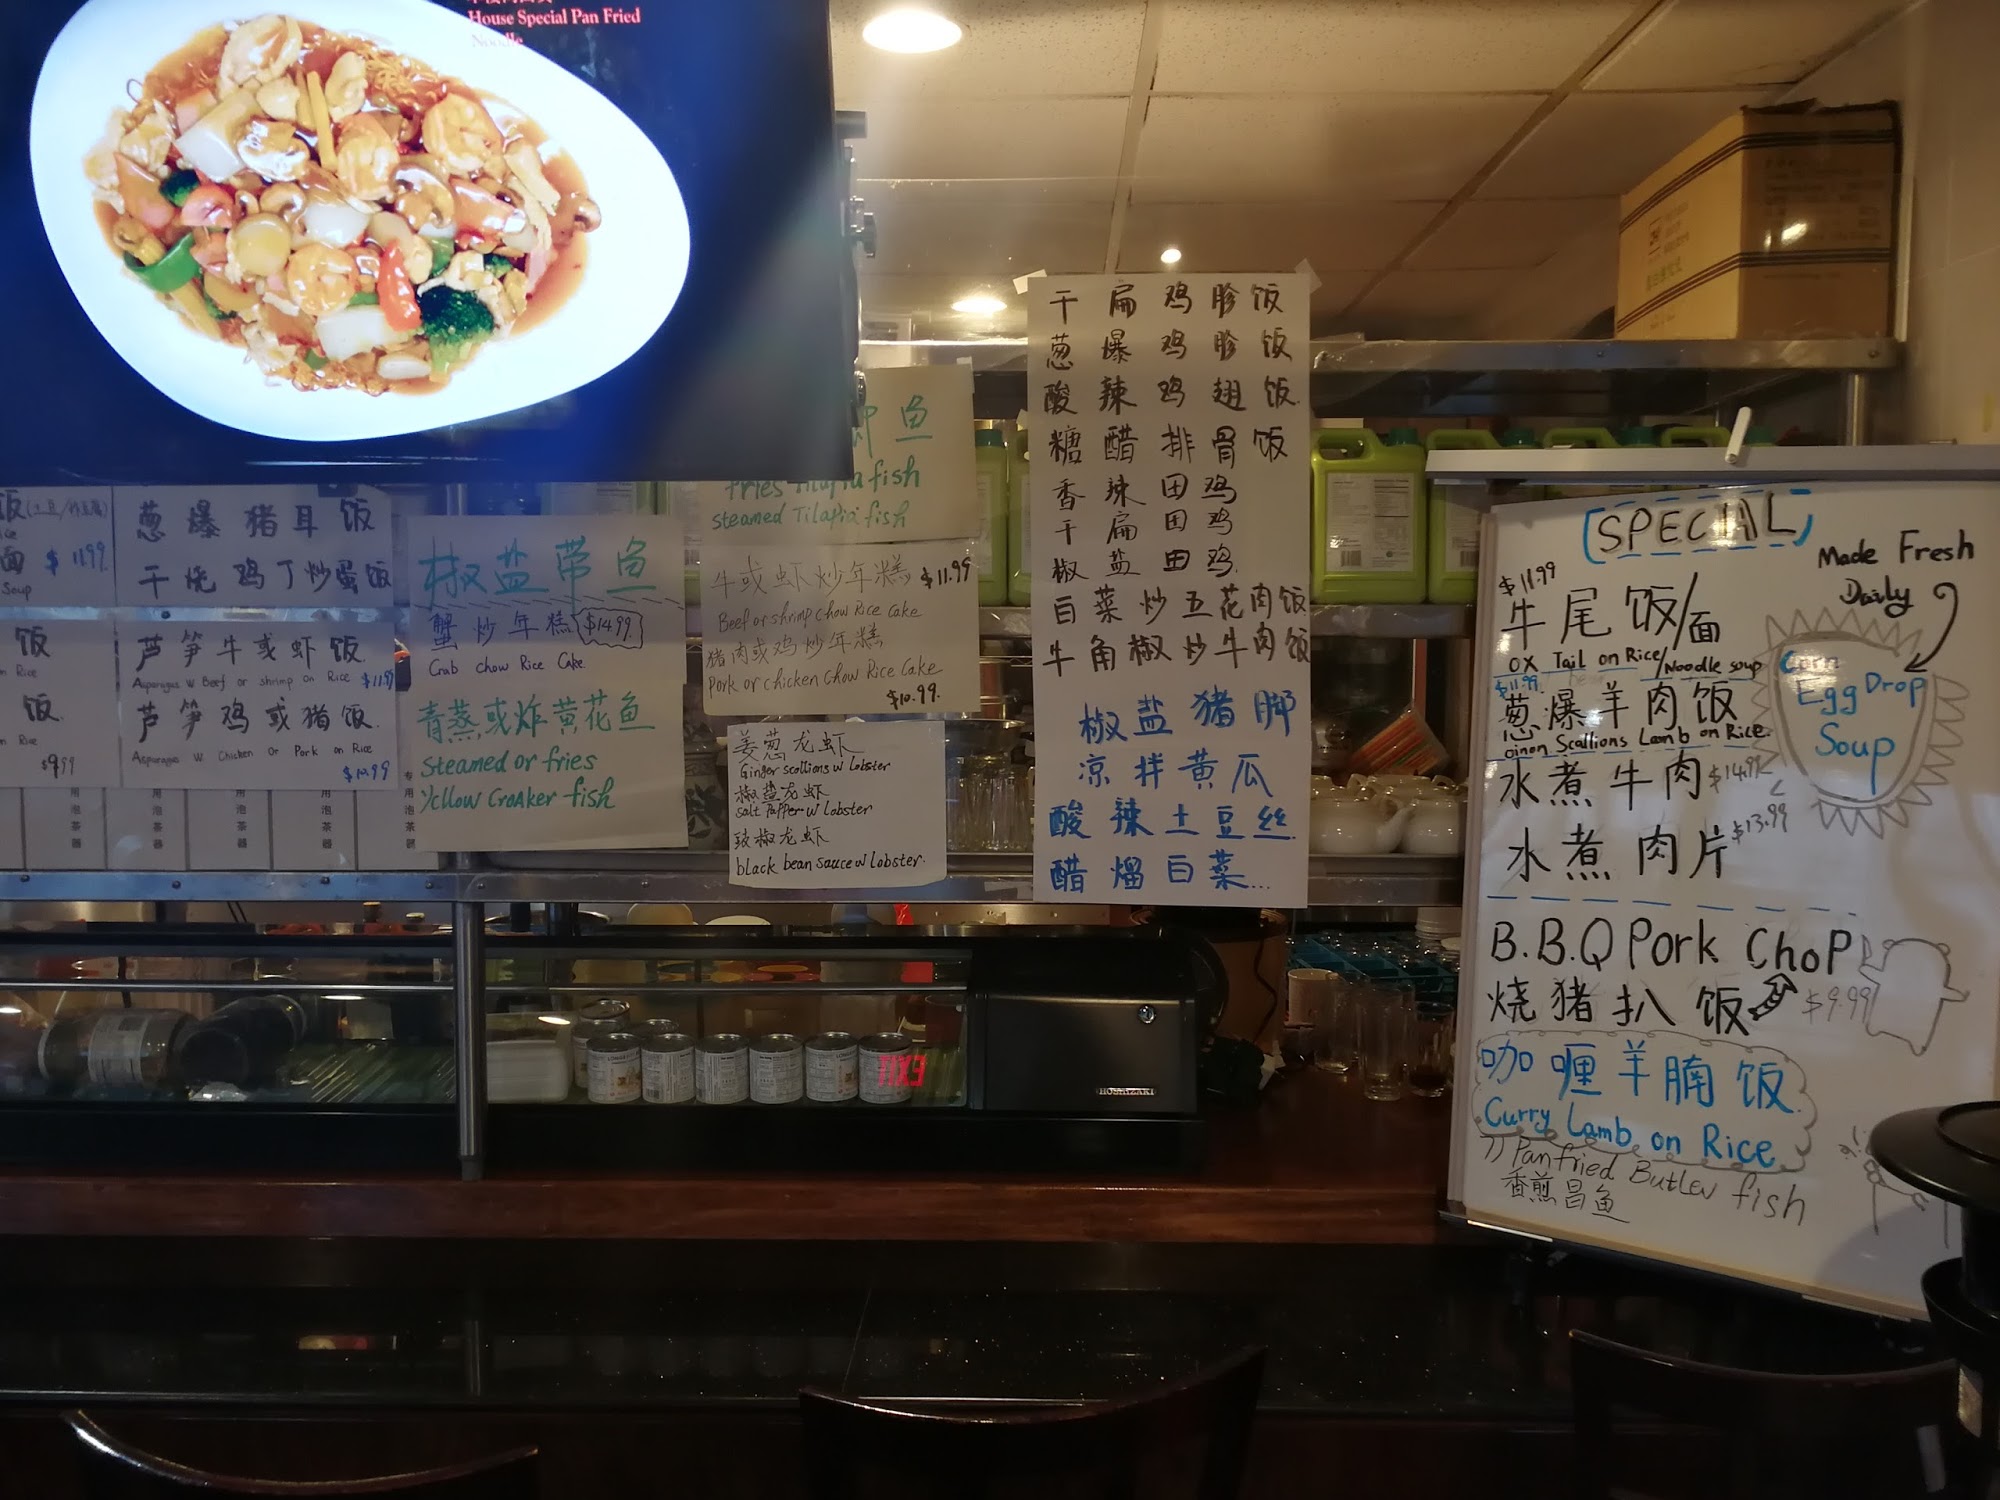 House Special Pan Fried
Noodle
饭(土豆/
面 $11.99
Soup
饭
Rice
饭
Rice
$9.99
葱爆猪耳饭
干烧鸡丁炒蛋饭
芦笋牛或虾饭
Asparagus w Beef or shrimp on Rice $11.99
芦笋鸡或猪饭
Asparagus w Chicken or Pork on Rice
$10.99
用泡茶器
用泡茶器
用泡茶器
用泡茶器
用泡茶器
椒盐带鱼
蟹炒年糕 $14.99
Crab chow Rice Cake
青蒸或炸黄花鱼
Steamed or fries
Yellow Croaker fish
鱼
fries Tilapia fish
steamed Tilapia fish
牛或虾炒年糕 $11.99
Beef or shrimp chow Rice Cake
猪肉或鸡炒年糕
Pork or chicken chow Rice Cake
$10.99.
姜葱龙虾
Ginger scallions w Lobster
椒盐龙虾
Salt Pepper w Lobster
豉椒龙虾
black bean sauce w Lobster.
干扁鸡胗饭
葱爆鸡胗饭
酸辣鸡翅饭
糖醋排骨饭
香辣田鸡
干扁田鸡
椒盐田鸡
白菜炒五花肉饭
牛角椒炒牛肉饭
椒盐猪脚
凉拌黄瓜
酸辣土豆丝
醋熘白菜...
SPECIAL
Made Fresh
Daily
$11.99
牛尾饭/面
OX Tail on Rice/Noodle soup
$11.99
葱爆羊肉饭
oinon Scallions Lamb on Rice
水煮牛肉 $14.99
水煮肉片 $13.99
Corn
Egg Drop
Soup
B.B.Q Pork Chop
烧猪扒饭 $9.99
咖喱羊腩饭
Curry Lamb on Rice
Panfried Butler fish
香煎昌鱼
HOSHIZAKI
EXIT